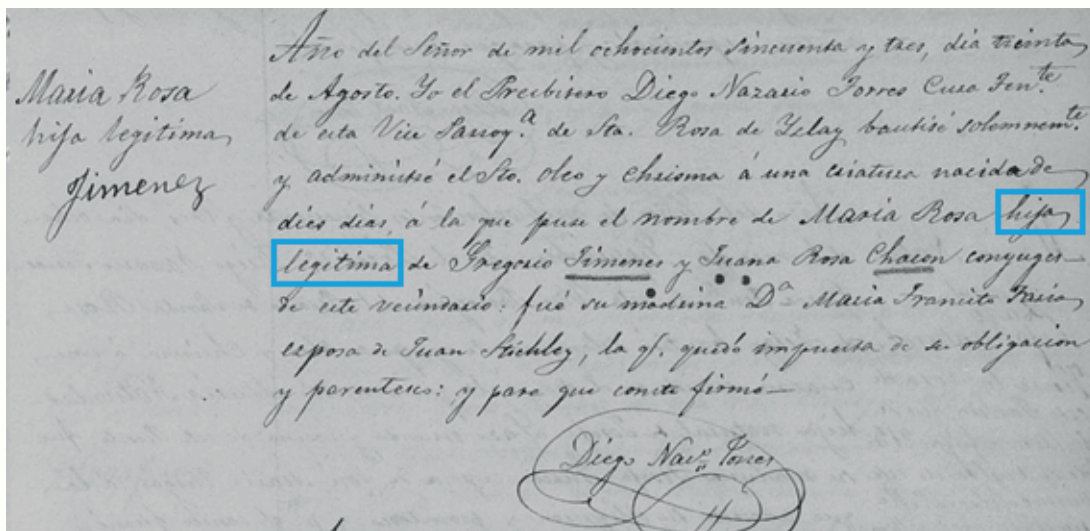 Maria Rosa
hija legitima
Jimenez
Año del Señor de mil ochocientos sincuenta y tres, dia treinta
de Agosto. Yo el Presbitero Diego Nazario Torres Cura Ten.te
de esta Vice Parroq.a de Sta. Rosa de Yelay bautisé solemnem.te
y administré el Sto. oleo y chrisma á una criatura nacida de
dies dias, á la que puse el nombre de Maria Rosa hija
legitima de Gregorio Jimenes y Juana Rosa Chacon conyuges
de este vecindario: fué su madrina Da Maria Transito
esposa de Juan, la q. quedó impuesta de su obligacion
y parentesco: y para que conste firmó
Diego Naz.o Torres